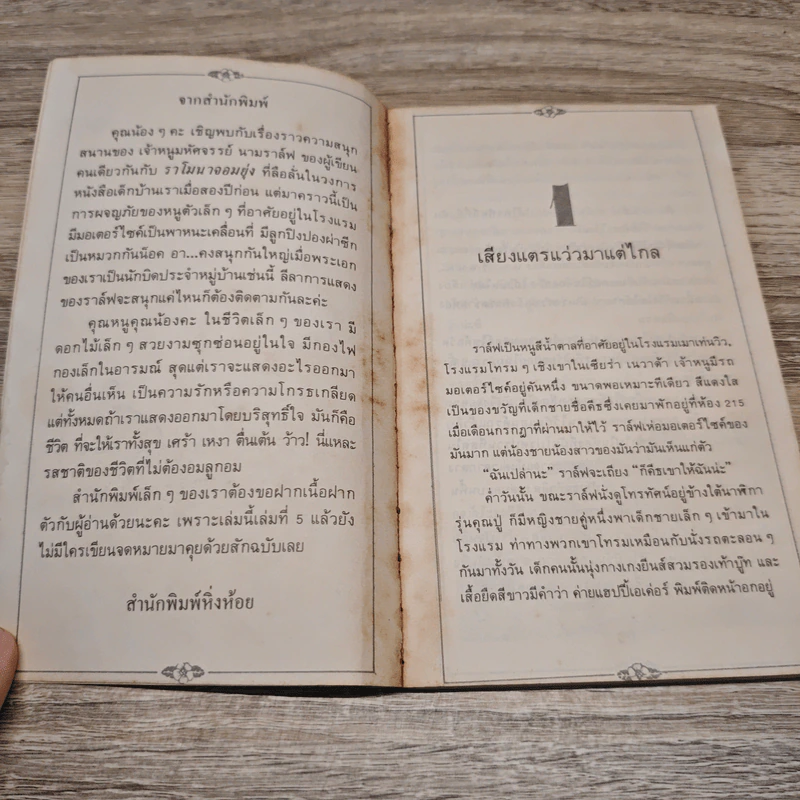 จากสำนักพิมพ์
คุณน้อง ๆ คะ เชิญพบกับเรื่องราวความสนุก
สนานของ เจ้าหนูมหัศจรรย์ นามราล์ฟ ของผู้เขียน
คนเดียวกันกับ ราโมนาจอมยุ่ง ที่ลือลั่นในวงการ
หนังสือเด็กบ้านเราเมื่อสองปีก่อน แต่มาคราวนี้เป็น
การผจญภัยของหนูตัวเล็ก ๆ ที่อาศัยอยู่ในโรงแรม
มีมอเตอร์ไซค์เป็นพาหนะเคลื่อนที่ มีลูกปิงปองผ่าซีก
เป็นหมวกกันน็อค อา...คงสนุกกันใหญ่เมื่อพระเอก
ของเราเป็นนักบิดประจำหมู่บ้านเช่นนี้ ลีลาการแสดง
ของราล์ฟจะสนุกแค่ไหนก็ต้องติดตามกันละค่ะ
คุณหนูคุณน้องคะ ในชีวิตเล็ก ๆ ของเรา มี
ดอกไม้เล็ก ๆ สวยงามซุกซ่อนอยู่ในใจ มีกองไฟ
กองเล็กในอารมณ์ สุดแต่เราจะแสดงอะไรออกมา
ให้คนอื่นเห็น เป็นความรักหรือความโกรธเกลียด
แต่ทั้งหมดถ้าเราแสดงออกมาโดยบริสุทธิ์ใจ มันก็คือ
ชีวิต ที่จะให้เราทั้งสุข เศร้า เหงา ตื่นเต้น ว้าว! นี่แหละ
รสชาติของชีวิตที่ไม่ต้องอมลูกอม
สำนักพิมพ์เล็ก ๆ ของเราต้องขอฝากเนื้อฝาก
ตัวกับผู้อ่านด้วยนะคะ เพราะเล่มนี้เล่มที่ 5 แล้วยัง
ไม่มีใครเขียนจดหมายมาคุยด้วยสักฉบับเลย
สำนักพิมพ์หิ่งห้อย
1
เสียงแตรแว่วมาแต่ไกล
ราล์ฟเป็นหนูสีน้ำตาลที่อาศัยอยู่ในโรงแรมเมาเท่นวิว,
โรงแรมโทรม ๆ เชิงเขาในเซียร่า เนวาด้า เจ้าหนูมีรถ
มอเตอร์ไซค์อยู่คันหนึ่ง ขนาดพอเหมาะทีเดียว สีแดงใส
เป็นของขวัญที่เด็กชายชื่อคีธซึ่งเคยมาพักอยู่ที่ห้อง 215
เมื่อเดือนกรกฎาที่ผ่านมาให้ไว้ ราล์ฟเห่อมอเตอร์ไซค์ของ
มันมาก แต่น้องชายน้องสาวของมันว่ามันเห็นแก่ตัว
“ฉันเปล่านะ” ราล์ฟจะเถียง “ก็คีธเขาให้ฉันน่ะ”
ค่ำวันนั้น ขณะราล์ฟนั่งดูโทรทัศน์อยู่ข้างใต้นาฬิกา
รุ่นคุณปู่ ก็มีหญิงชายคู่หนึ่งพาเด็กชายเล็ก ๆ เข้ามาใน
โรงแรม ท่าทางพวกเขาโทรมเหมือนกับนั่งรถตะลอน ๆ
กันมาทั้งวัน เด็กคนนั้นนุ่งกางเกงยีนส์สวมรองเท้าบู๊ท และ
เสื้อยืดสีขาวมีคำว่า ค่ายแฮปปี้เอเค่อร์ พิมพ์ติดหน้าอกอยู่